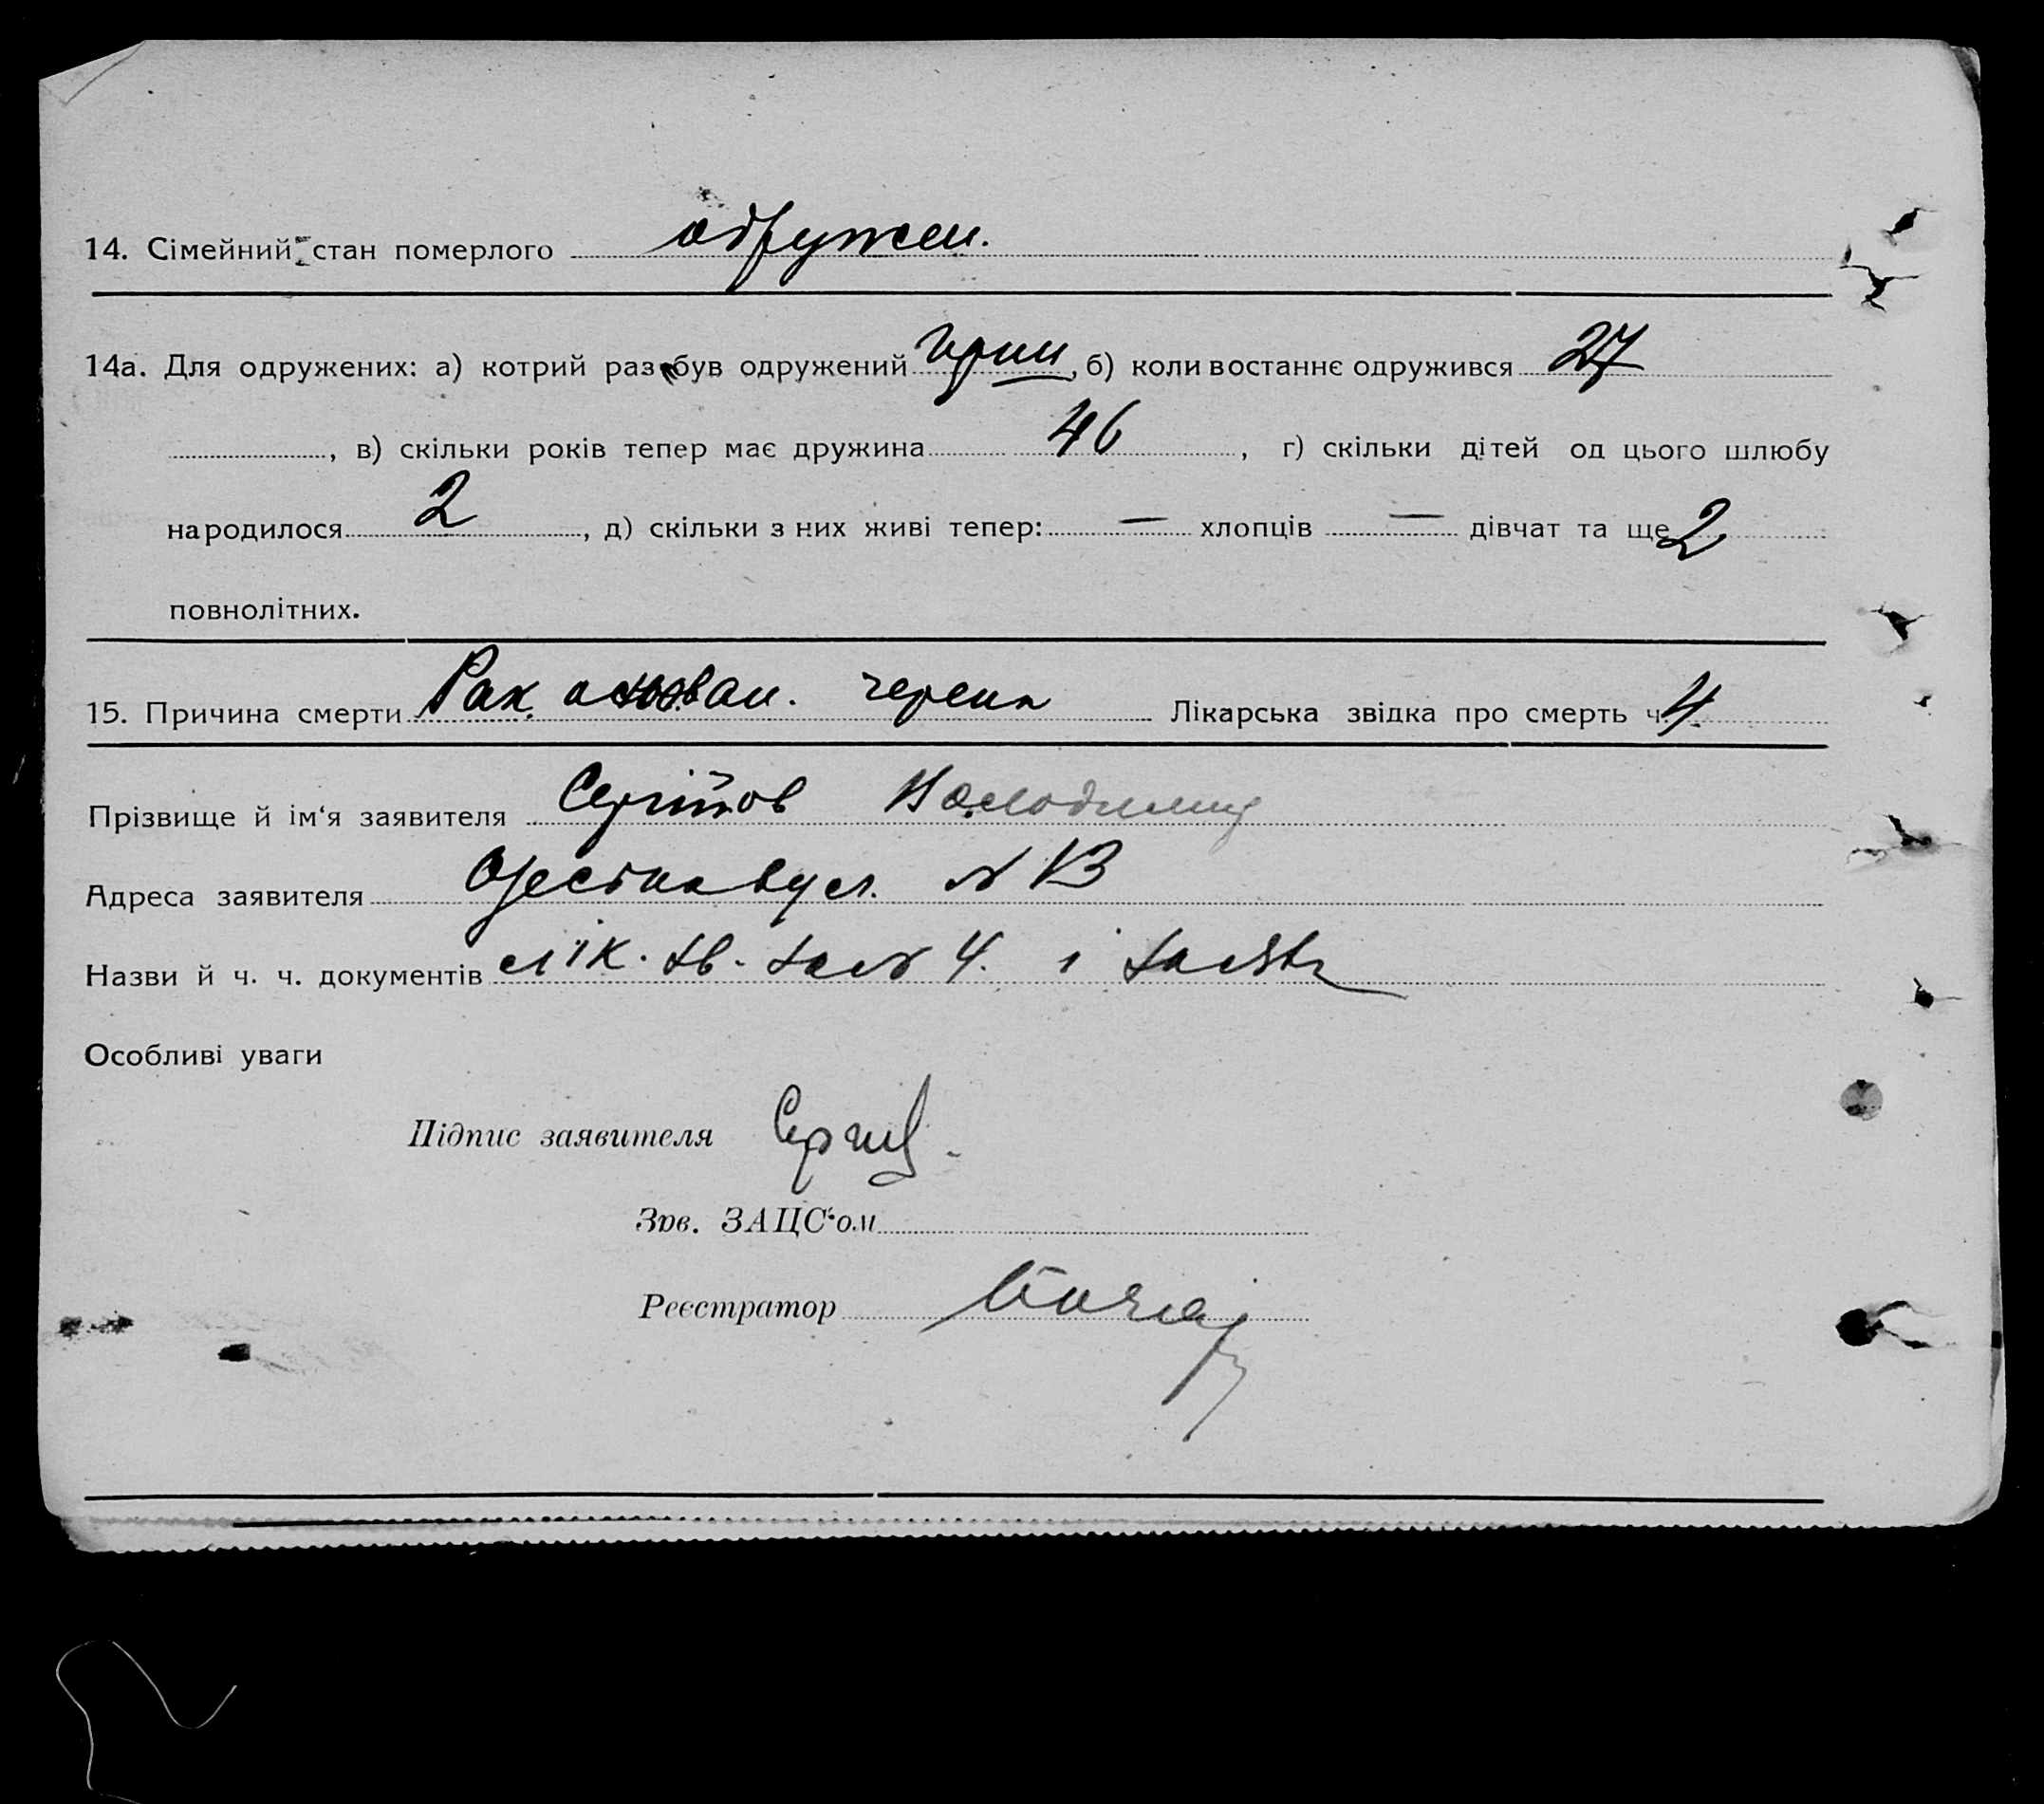 14. Сімейний стан померлого одружен.
14а. Для одружених: а) котрий раз був одружений, б) коли востаннє одружився 27
, в) скільки років тепер має дружина 46, г) скільки дітей од цього шлюбу
народилося 2, д) скільки з них живі тепер: — хлопців — дівчат та ще 2
повнолітних.
15. Причина смерти Рак основан. черепа Лікарська звідка про смерть ч. 4
Прізвище й ім‘я заявителя Сергіїов Володимир
Адреса заявителя вул. № 13
Назви й ч. ч. документів лік. зв. за № 4. і заява
Особливі уваги
Підпис заявителя
Зав. ЗАЦС‘ом
Реєстратор